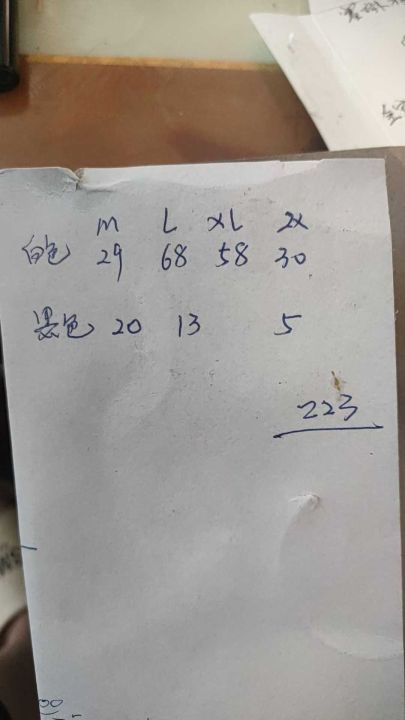 M L XL 2X
白色 29 68 58 30
黑色 20 13 5
223